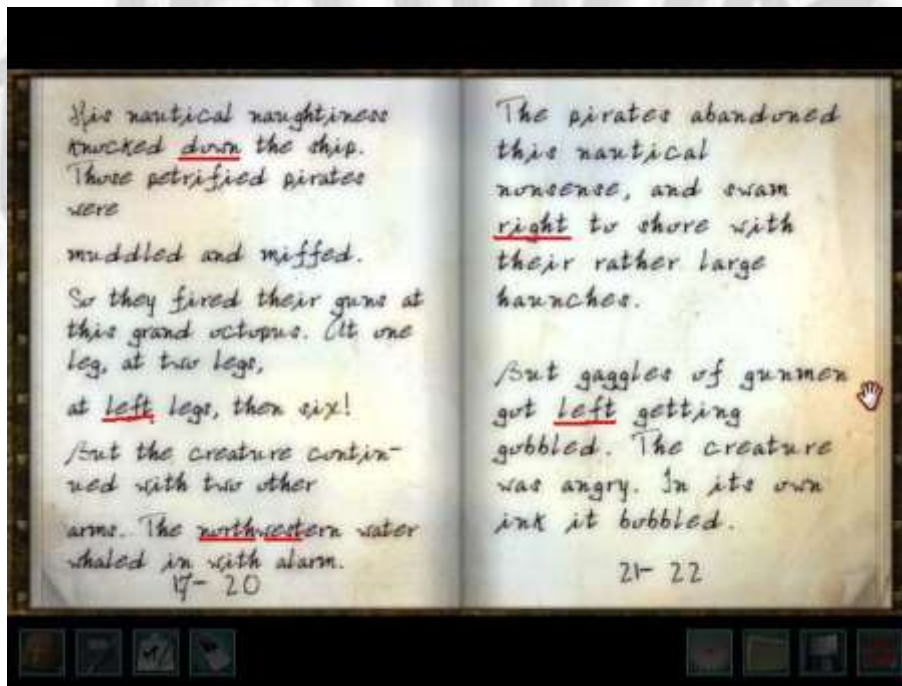 His nautical naughtiness
knocked down the ship.
Those petrified pirates
were
muddled and miffed.
So they fired their guns at
this grand octopus. At one
leg, at two legs,
at left legs, then six!
But the creature contin-
ued with two other
arms. The northwestern water
whaled in with alarm.
17- 20
The pirates abandoned
this nautical
nonsense, and swam
right to shore with
their rather large
haunches.
But gaggles of gunmen
got left getting
gobbled. The creature
was angry. In its own
ink it bobbled.
21- 22